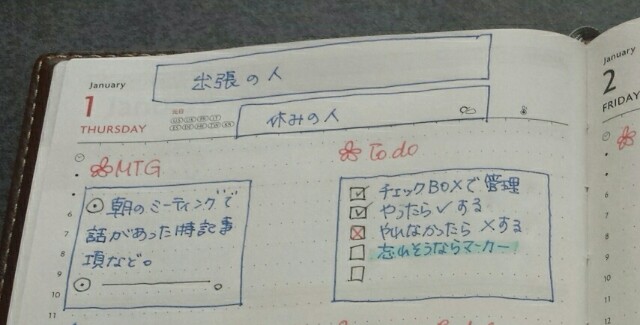 出張の人
休みの人
January
1
THURSDAY
January
2
FRIDAY
MTG
Todo
朝のミーティングで
話があった特記事
項など。
チェックBOXで管理
やったら✓する
やれなかったら×する
忘れそうならマーカー
6
7
8
9
10
11
6
7
8
9
10
11